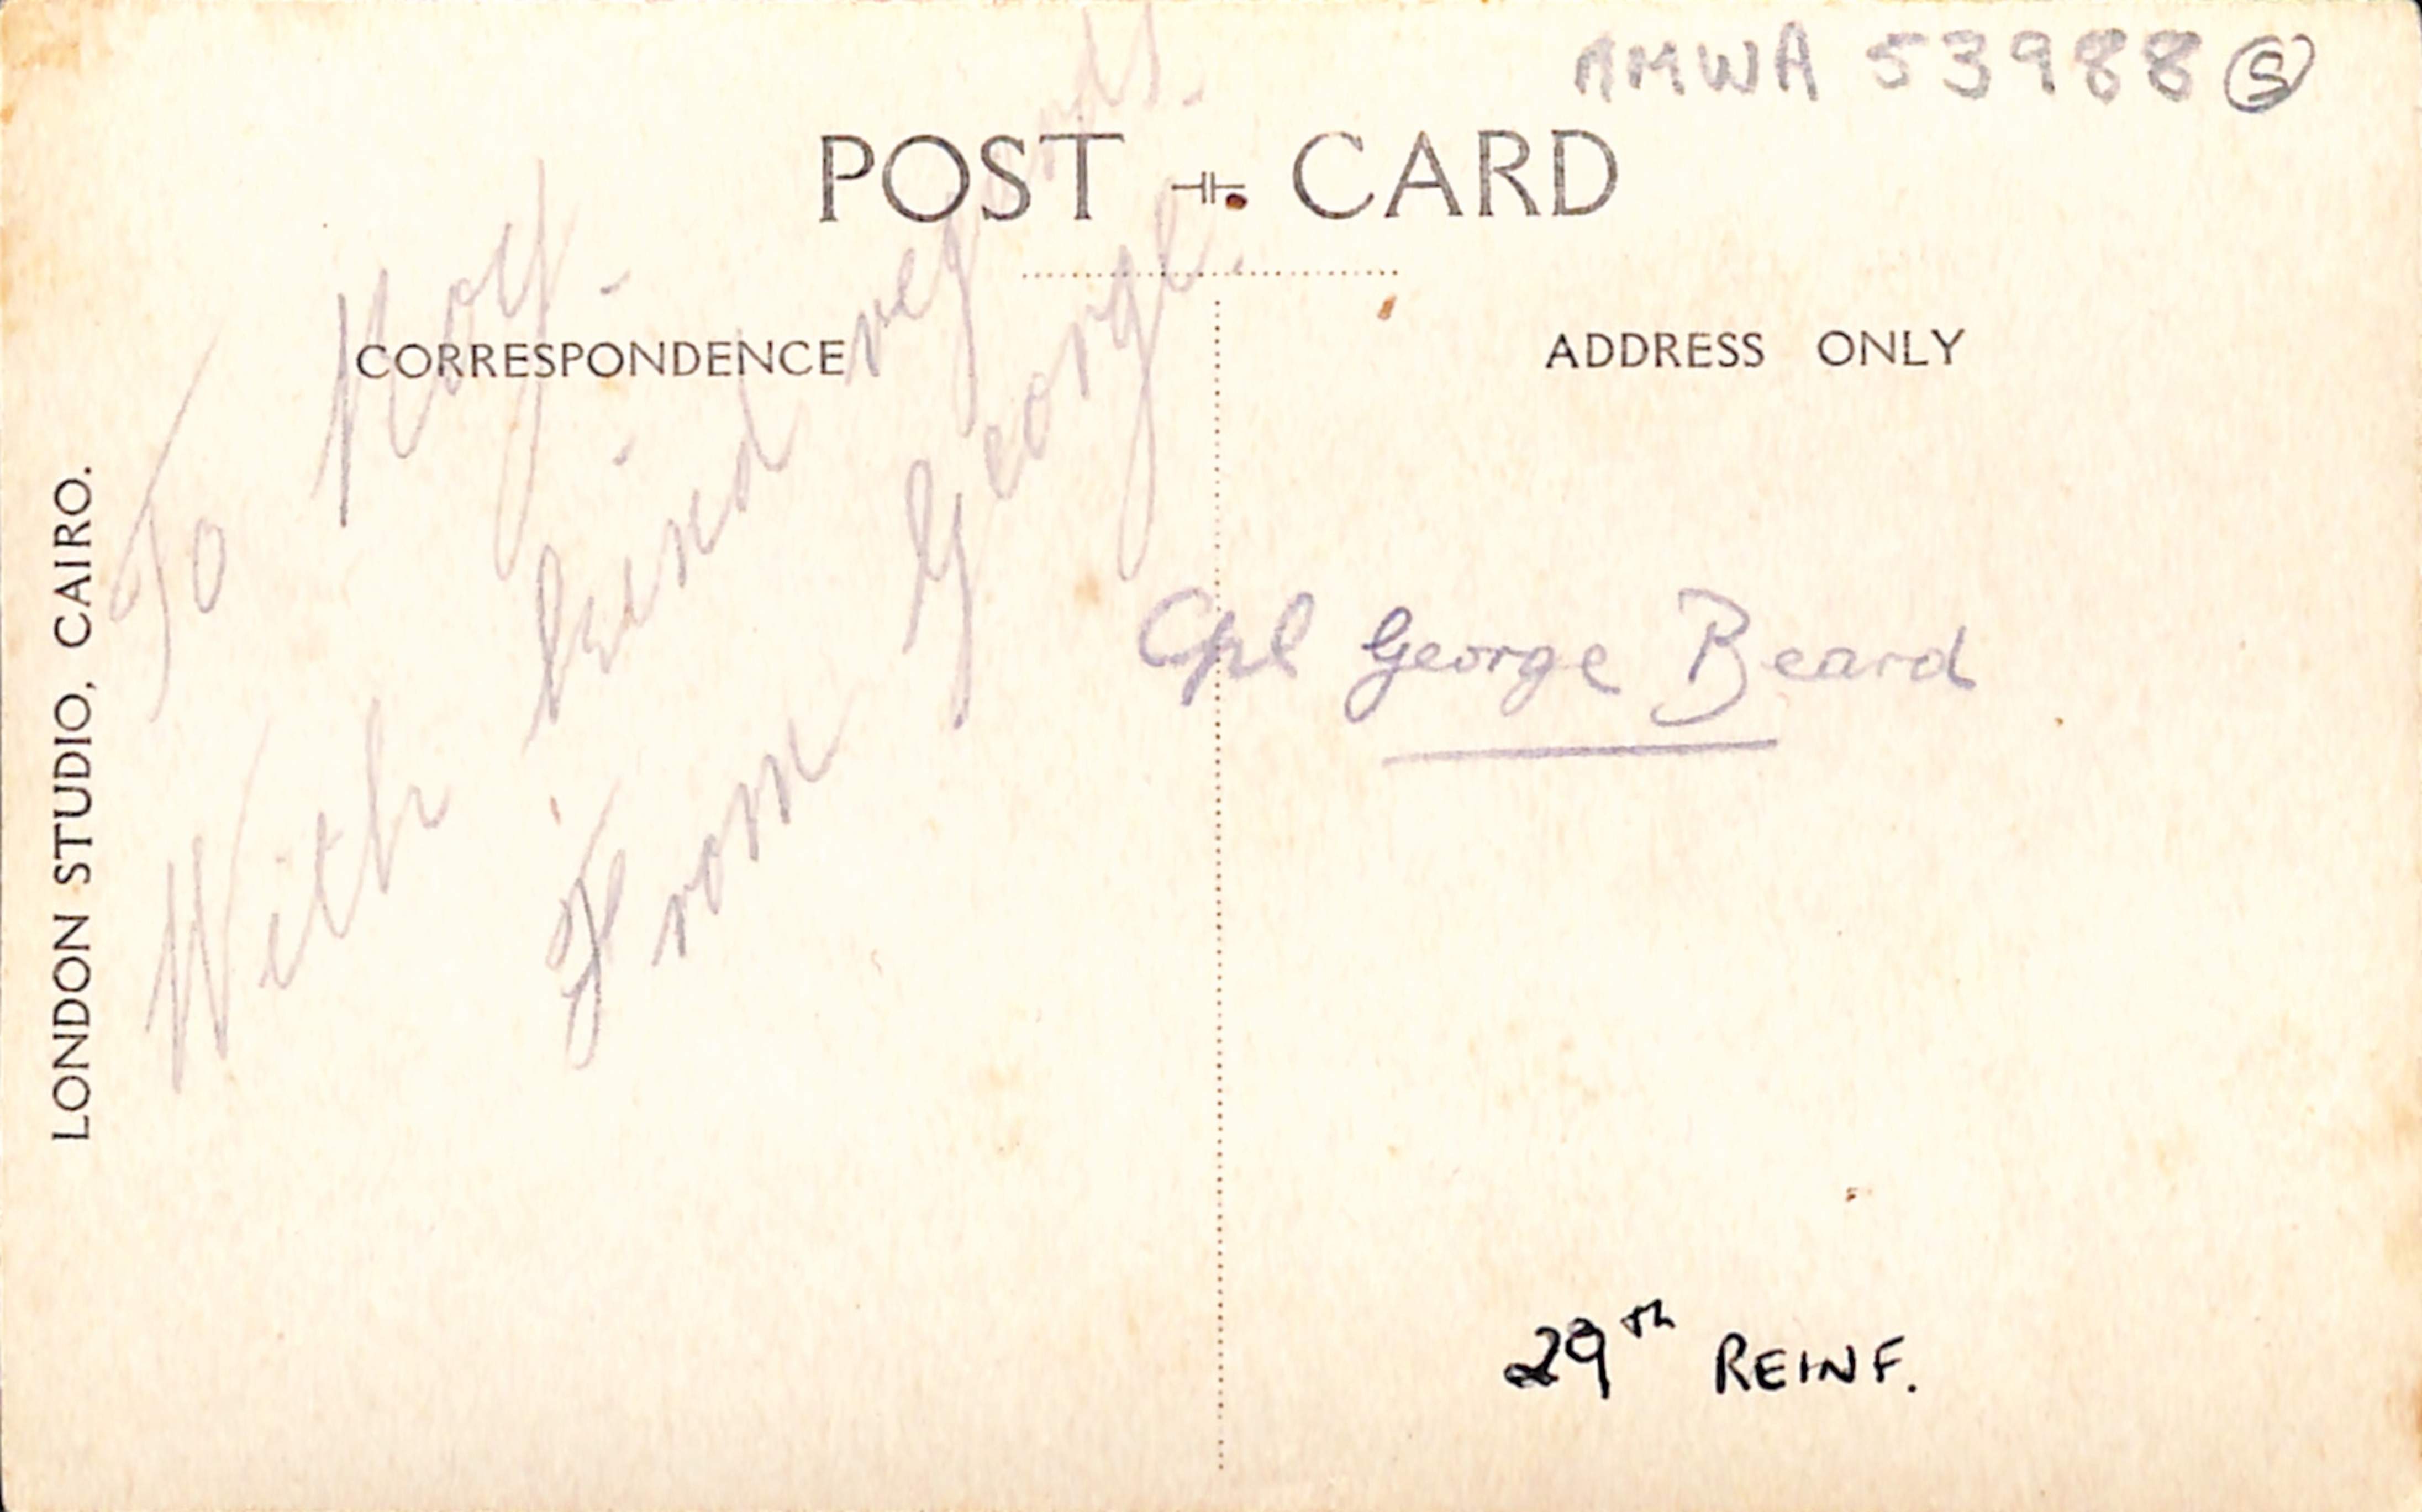 AMWA 53988 S
POST CARD
CORRESPONDENCE
ADDRESS ONLY
LONDON STUDIO, CAIRO.
To Roy.
With kind regards.
From George.
Cpl George Beard
29th REINF.